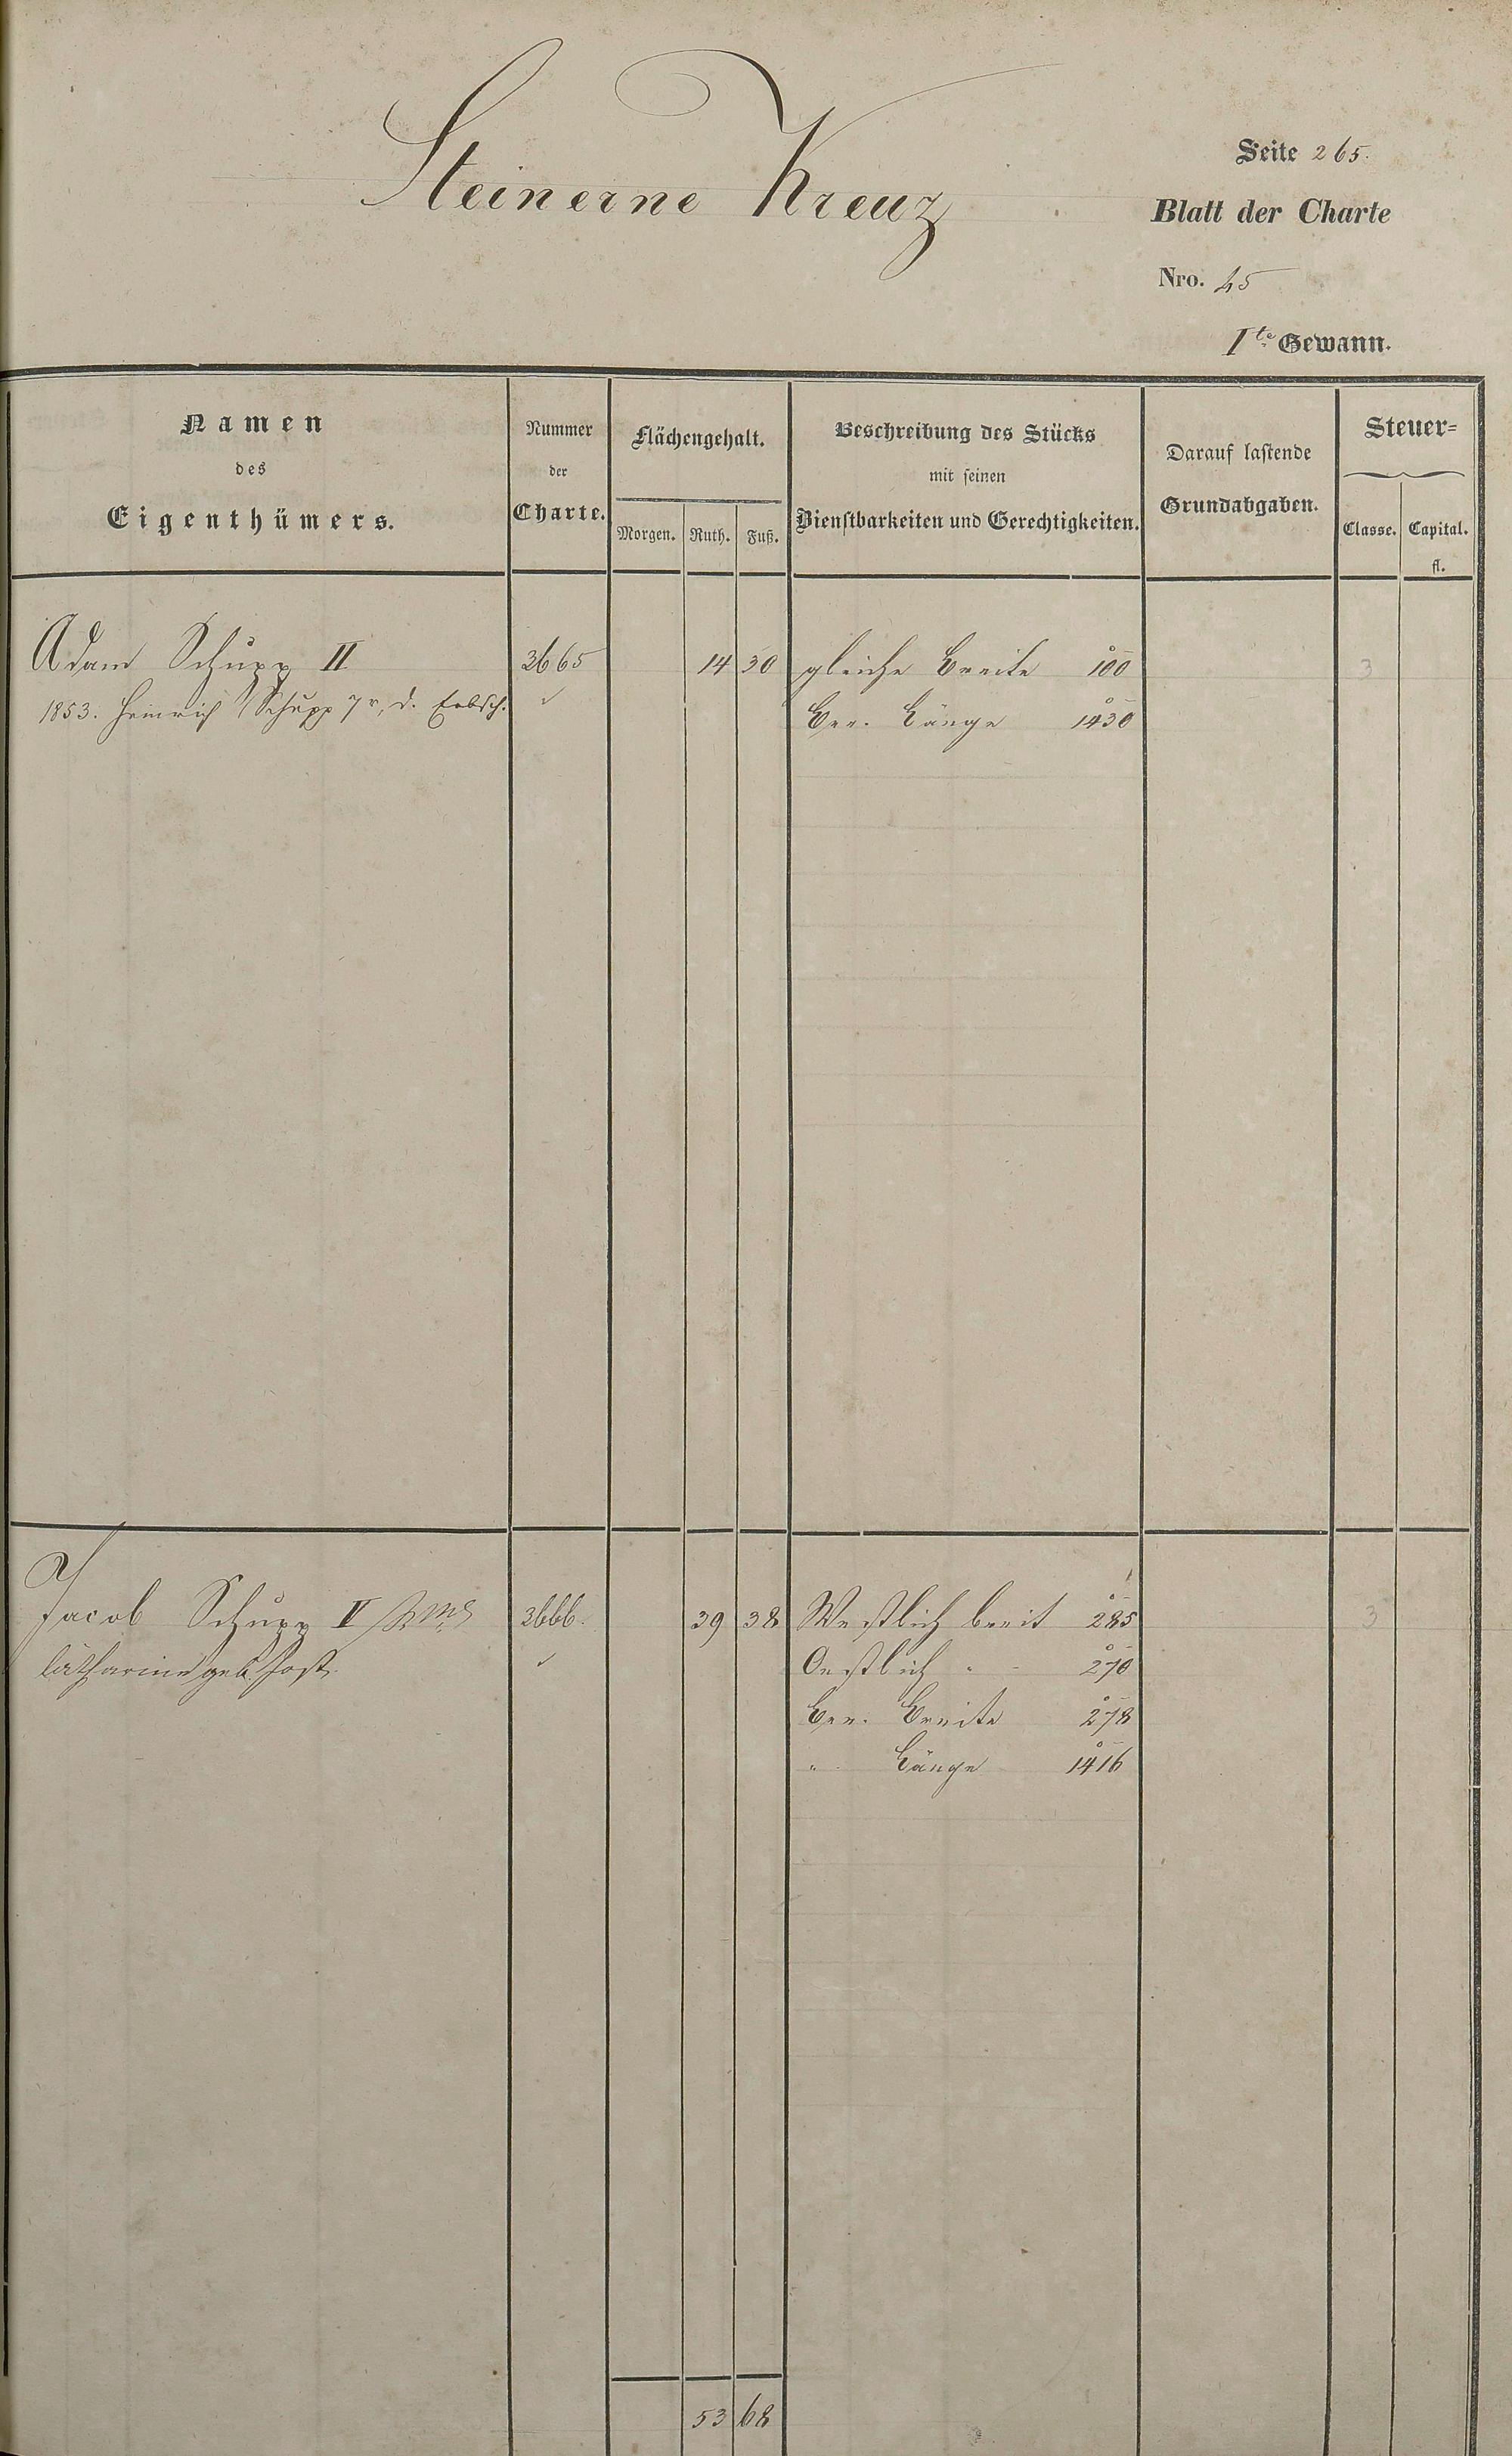 Steinerne Kreuz
Seite 265.
Blatt der Charte
Nro. 45
Ite Gewann.
Namen
des
Eigenthümers.
Nummer
der
Charte.
Flächengehalt.
Morgen. Ruth. Fuß.
Beschreibung des Stücks
mit seinen
Dienstbarkeiten und Gerechtigkeiten.
Darauf lastende
Grundabgaben.
Steuer=
Classe. Capital.
fl.
Adam Schupp II 3665 14 30 gleiche Breite 100 3
1853. Heinrich Schupp 7r, d. Erbsch. Ber. Länge 1430
Jacob Schupp V 3666. 39 38 Westlich breit 285 3
Catharine geb. Jost. Oestlich " 270
Ber. Breite 278
" Länge 1416
53 68